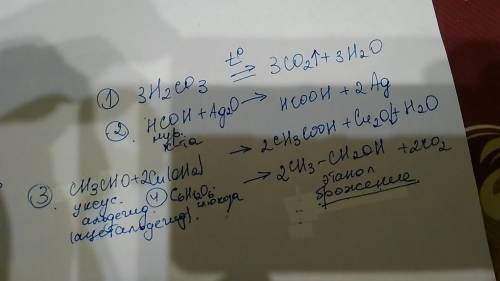 ① 3H₂CO₃ t° ⇒ 3CO₂↑ + 3H₂O
②. HCOH + Ag₂O → HCOOH + 2Ag
мур.
к-та
③ CH₃CHO + 2Cu(OH₂) → 2CH₃COOH + Cu₂O↓ + H₂O
уксус.
альдегид
(ацетальдегид).
④ C₆H₁₂O₆ → 2CH₃-CH₂OH + 2CO₂
глюкоза этанол
брожение